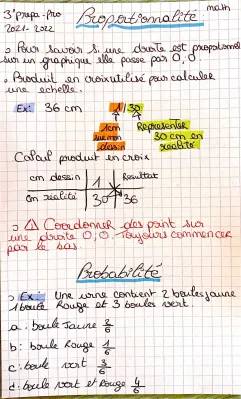 3° prepa-pro
2021-2022
Proportionnalité
math
○ Pour savoir si une droite est proportionnel
sur un graphique elle passe par 0,0.
○ Produit en croix utilisé pour calculer
une echelle.
Ex: 36 cm 1/30
1cm sur mon dessin
Représentée 30 cm en realité
Calcul produit en croix
cm dessin 1 Resultat
cm realité 30 36
○ ⚠ Coordonner des point sur
une droite 0,0. Toujours commencer
par le bas
Probabilité
○ Ex: Une urne contient 2 boules jaune
1 boule Rouge et 3 boules vert
a: boule Jaune 2/6
b: boule Rouge 1/6
c: boule vert 3/6
d: boule vert et Rouge 4/6